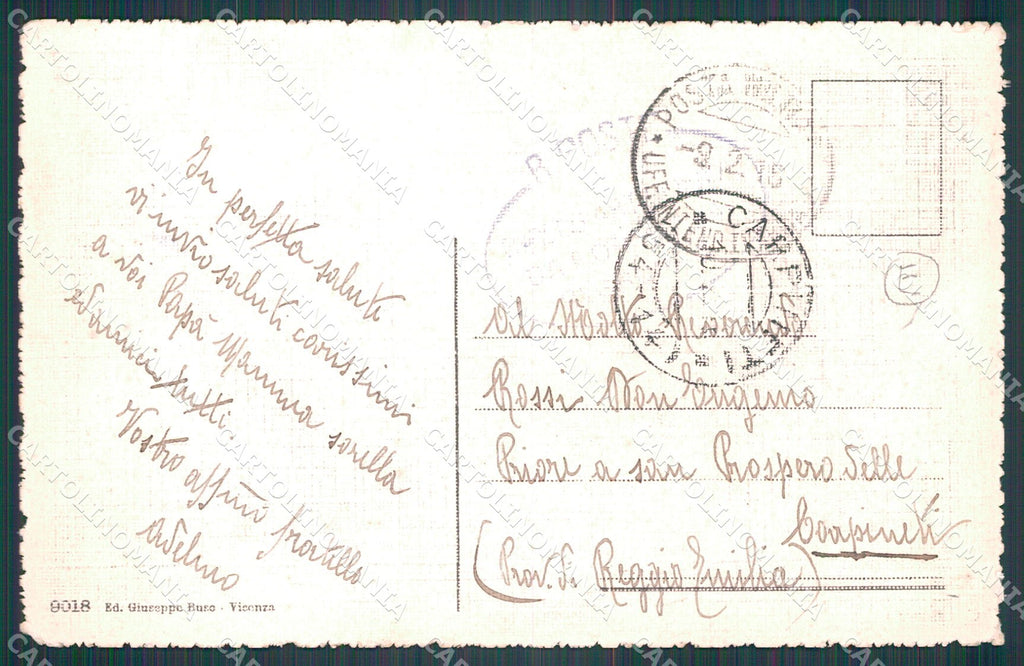 In perfetta saluti
vi invio saluti carissimi
a voi Papà Mamma sorella
tutti
Vostro affmo fratello
Adelmo
9018 Ed. Giuseppe Buso - Vicenza
POSTA
UFF. INTEND
CARPINETI
Al Molto
Rossi Don Eugenio
Priore a san Prospero delle
Carpineti
(Prov. di Reggio Emilia)
CARTOLINOMANIA